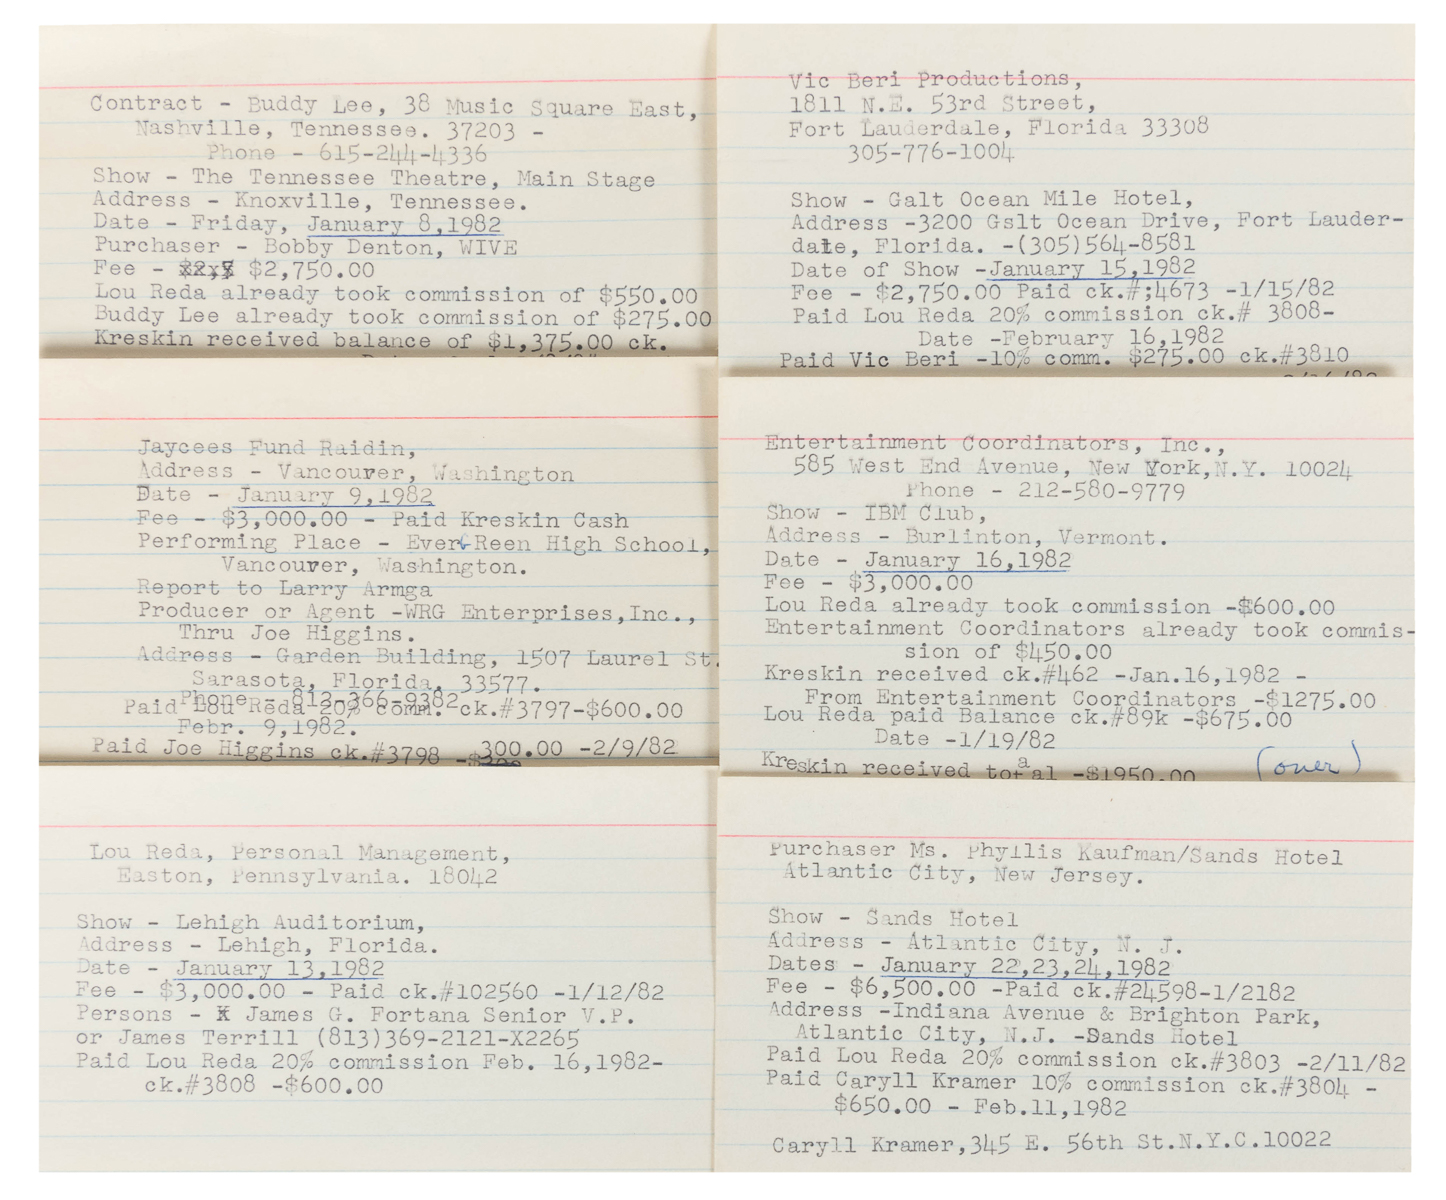 Contract - Buddy Lee, 38 Music Square East,
Nashville, Tennessee. 37203 -
Phone - 615-244-4336
Show - The Tennessee Theatre, Main Stage
Address - Knoxville, Tennessee.
Date - Friday, January 8,1982
Purchaser - Bobby Denton, WIVE
Fee - $2,750.00
Lou Reda already took commission of $550.00
Buddy Lee already took commission of $275.00
Kreskin received balance of $1,375.00 ck.
Vic Beri Productions,
1811 N.E. 53rd Street,
Fort Lauderdale, Florida 33308
305-776-1004
Show - Galt Ocean Mile Hotel,
Address -3200 Gslt Ocean Drive, Fort Lauder-
date, Florida. -(305)564-8581
Date of Show -January 15,1982
Fee - $2,750.00 Paid ck.#;4673 -1/15/82
Paid Lou Reda 20% commission ck.# 3808-
Date -February 16,1982
Paid Vic Beri -10% comm. $275.00 ck.#3810
Jaycees Fund Raidin,
Address - Vancouver, Washington
Date - January 9,1982
Fee - $3,000.00 - Paid Kreskin Cash
Performing Place - EverGReen High School,
Vancouver, Washington.
Report to Larry Armga
Producer or Agent -WRG Enterprises,Inc.,
Thru Joe Higgins.
Address - Garden Building, 1507 Laurel St.
Sarasota, Florida, 33577.
Phone - 812-366-9382
Paid Lou Reda 20% comm. ck.#3797-$600.00
Febr. 9,1982.
Paid Joe Higgins ck.#3798 -$300.00 -2/9/82
Entertainment Coordinators, Inc.,
585 West End Avenue, New York,N.Y. 10024
Phone - 212-580-9779
Show - IBM Club,
Address - Burlinton, Vermont.
Date - January 16,1982
Fee - $3,000.00
Lou Reda already took commission -$600.00
Entertainment Coordinators already took commis-
sion of $450.00
Kreskin received ck.#462 -Jan.16,1982 -
From Entertainment Coordinators -$1275.00
Lou Reda paid Balance ck.#89k -$675.00
Date -1/19/82
Kreskin received total -$1950.00 (over)
Lou Reda, Personal Management,
Easton, Pennsylvania. 18042
Show - Lehigh Auditorium,
Address - Lehigh, Florida.
Date - January 13,1982
Fee - $3,000.00 - Paid ck.#102560 -1/12/82
Persons - James G. Fortana Senior V.P.
or James Terrill (813)369-2121-X2265
Paid Lou Reda 20% commission Feb. 16,1982-
ck.#3808 -$600.00
Purchaser Ms. Phyllis Kaufman/Sands Hotel
Atlantic City, New Jersey.
Show - Sands Hotel
Address - Atlantic City, N. J.
Dates - January 22,23,24,1982
Fee - $6,500.00 -Paid ck.#24598-1/2182
Address -Indiana Avenue & Brighton Park,
Atlantic City, N.J. -Sands Hotel
Paid Lou Reda 20% commission ck.#3803 -2/11/82
Paid Caryll Kramer 10% commission ck.#3804 -
$650.00 - Feb.11,1982
Caryll Kramer,345 E. 56th St.N.Y.C.10022